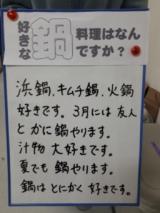 好きな鍋料理はなんですか？
浜鍋、キムチ鍋、火鍋
好きです。3月には友人
とかに鍋やります。
汁物大好きです。
夏でも鍋やります。
鍋はとにかく好きです。